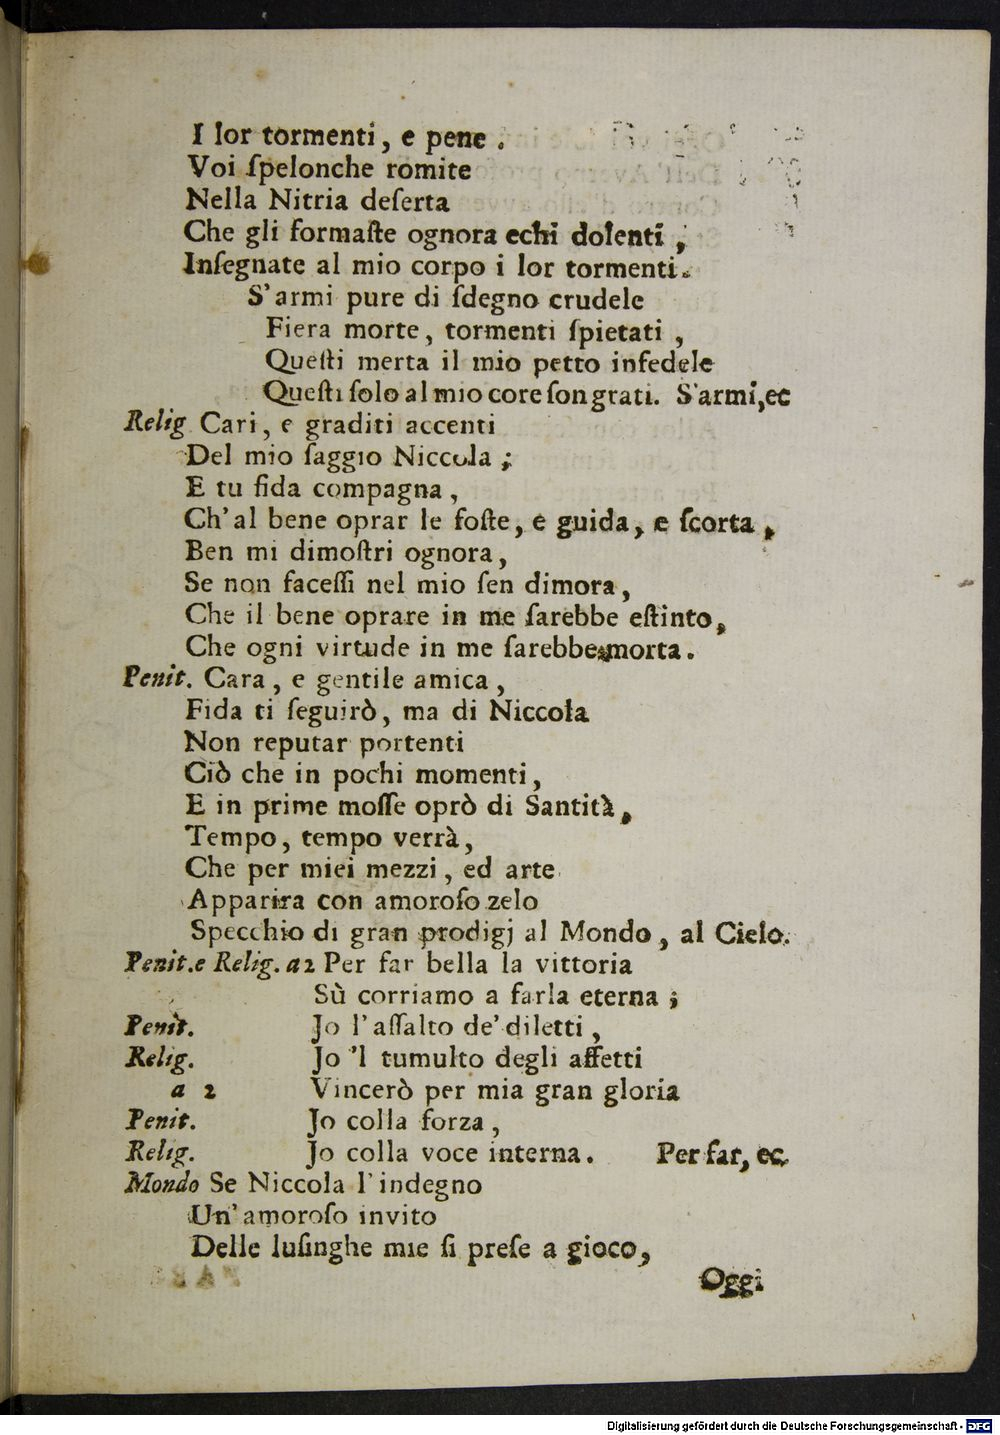 I lor tormenti, e pene.
Voi ſpelonche romite
Nella Nitria deſerta
Che gli formaſte ognora echi dolenti,
Inſegnate al mio corpo i lor tormenti.
S'armi pure di ſdegno crudele
Fiera morte, tormenti ſpietati,
Queſti merta il mio petto infedele
Queſti ſolo al mio core ſon grati. S'armi, ec
Relig. Cari, e graditi accenti
Del mio ſaggio Niccola;
E tu fida compagna,
Ch'al bene oprar le foſte, e guida, e ſcorta,
Ben mi dimoſtri ognora,
Se non faceſſi nel mio ſen dimora,
Che il bene oprare in me ſarebbe eſtinto,
Che ogni virtude in me ſarebbe morta.
Penit. Cara, e gentile amica,
Fida ti ſeguirò, ma di Niccola
Non reputar portenti
Ciò che in pochi momenti,
E in prime moſſe oprò di Santità,
Tempo, tempo verrà,
Che per miei mezzi, ed arte
Apparira con amoroſo zelo
Specchio di gran prodigj al Mondo, al Cielo.
Penit. e Relig. a 2 Per far bella la vittoria
Sù corriamo a farla eterna;
Penit. Jo l'aſſalto de' diletti,
Relig. Jo 'l tumulto degli affetti
a 2 Vincerò per mia gran gloria
Penit. Jo colla forza,
Relig. Jo colla voce interna. Per far, ec.
Mondo Se Niccola l'indegno
Un'amoroſo invito
Delle luſinghe mie ſi preſe a gioco,
Oggi
Digitalisierung gefördert durch die Deutsche Forschungsgemeinschaft - DFG